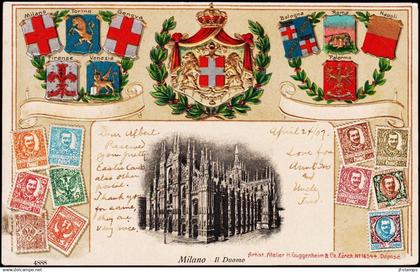 Milano Torino Genova
Bologna Roma Napoli
Firenze Venezia
Palermo
Dear Albert
Received
you pretty
Easter Card
also other
postal.
Thank you
for same
they are
very nice.
April 24/07.
Love from
Aunt
and
Uncle
Fred
Milano Il Duomo
4888
Artist. Atelier H. Guggenheim & Co. Zürich No 16544. Déposé.